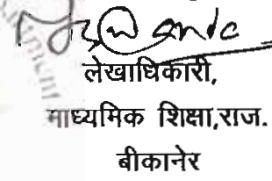 लेखाधिकारी,
माध्यमिक शिक्षा,राज.
बीकानेर